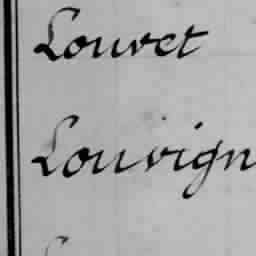 Louvet
Louvign